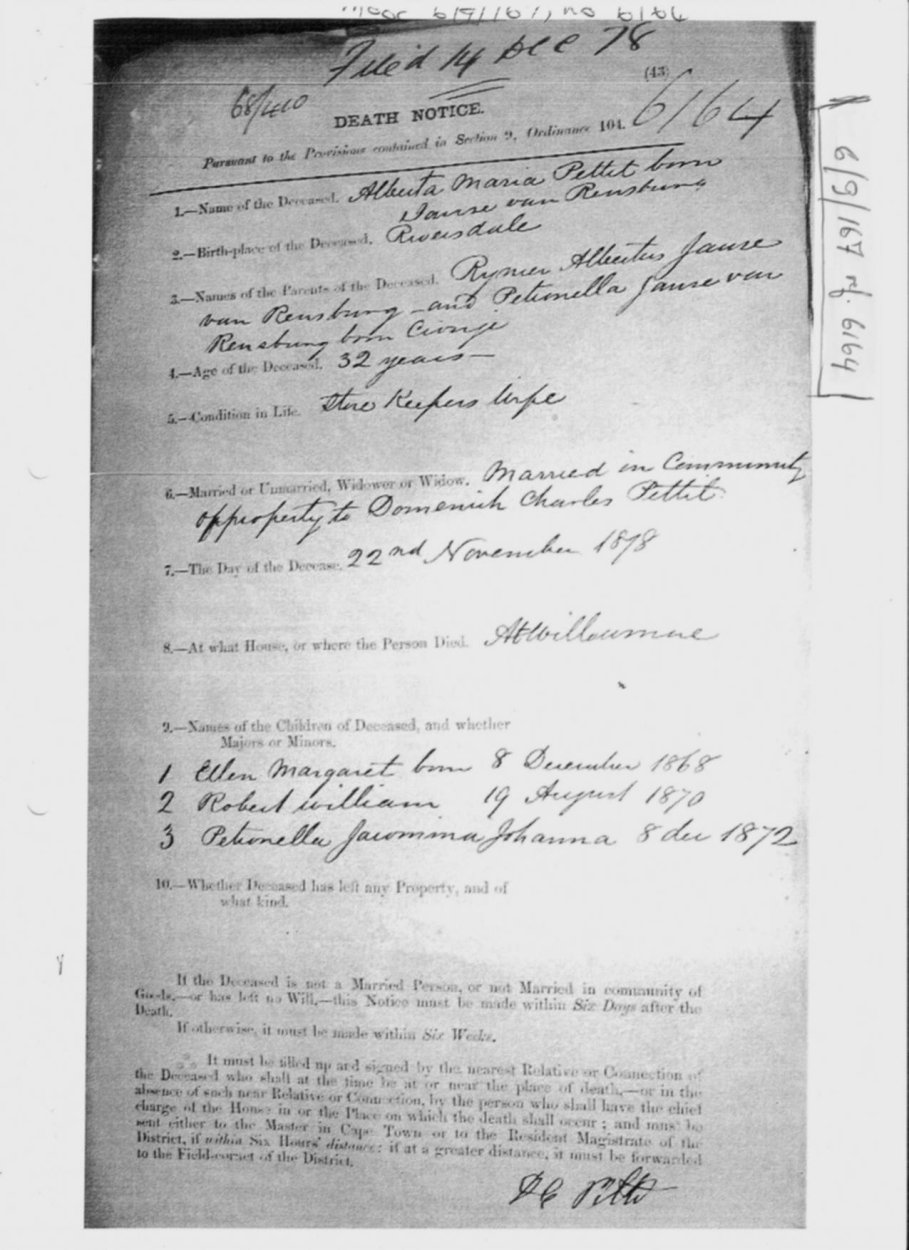 MOOC 6/9/167, no 6164
Filed 14 Dec 78
(43)
6164
DEATH NOTICE.
Pursuant to the Provisions contained in Section 9, Ordinance 104.
1.—Name of the Deceased. Alberta Maria Pettit born
Janse van Rensburg
2.—Birth-place of the Deceased. Riversdale
3.—Names of the Parents of the Deceased. Rynier Albertus Janse
van Rensburg and Petronella Janse van
Rensburg born Cronje
4.—Age of the Deceased. 32 years—
5.—Condition in Life. Store Keepers Wife
6.—Married or Unmarried, Widower or Widow. Married in Community
of property to Domenich Charles Pettit
7.—The Day of the Decease. 22nd November 1878
8.—At what House, or where the Person Died. At Willowmore
9.—Names of the Children of Deceased, and whether
Majors or Minors.
1 Ellen Margaret born 8 December 1868
2 Robert William 19 August 1870
3 Petronella Jacomina Johanna 8 dec 1872
10.—Whether Deceased has left any Property, and of
what kind.
If the Deceased is not a Married Person, or not Married in community of
Goods,—or has left no Will,—this Notice must be made within Six Days after the
Death.
If otherwise, it must be made within Six Weeks.
It must be filled up and signed by the nearest Relative or Connection of
the Deceased who shall at the time be at or near the place of death,—or in the
absence of such near Relative or Connection, by the person who shall have the chief
charge of the House in or the Place on which the death shall occur; and must be
sent either to the Master in Cape Town or to the Resident Magistrate of the
District, if within Six Hours' distance: if at a greater distance, it must be forwarded
to the Field-cornet of the District.
D C Pettit
6/9/167 rf. 6164